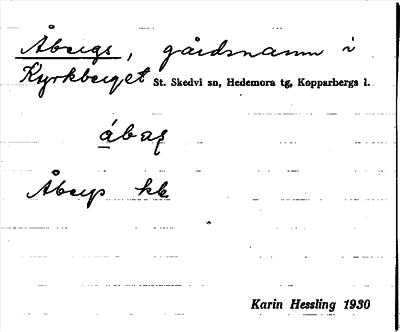 Åbergs, gårdsnamn i
Kyrkberget St. Skedvi sn, Hedemora tg, Kopparbergs l.
Åbergs kb
Karin Hessling 1930